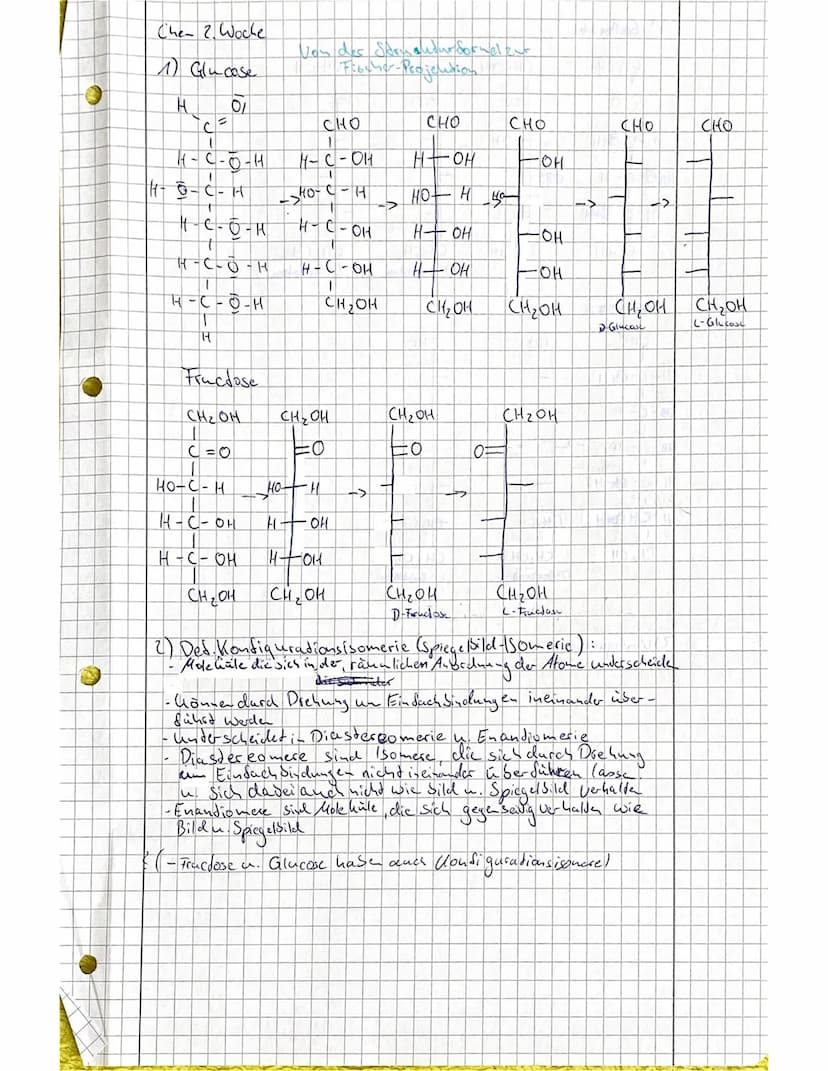 Chem 2. Woche
Von der Strukturformel zur
Fischer-Projektion
1) Glucose
H O
C =
CHO CHO CHO CHO CHO
H - C - O - H H - C - OH H OH OH
H - O - C - H -> HO - C - H -> HO H -> HO -> ->
H - C - O - H H - C - OH H OH OH
H - C - O - H H - C - OH H OH OH
H - C - O - H CH2OH CH2OH CH2OH CH2OH CH2OH
H D-Glucose L-Glucose
Fructose
CH2OH CH2OH CH2OH CH2OH
C = O =O =O O=
HO - C - H -> HO H -> ->
H - C - OH H OH
H - C - OH H OH
CH2OH CH2OH CH2OH CH2OH
D-Fructose L-Fructose
2) Def. Konfigurationsisomerie (Spiegelbild-Isomerie):
- Moleküle die sich in der räumlichen Anordnung der Atome unterscheide
- Können durch Drehung um Einfachbindungen ineinander über-
führt werden
- Unterscheidet in Diastereomerie u. Enantiomerie
- Diastereomere sind Isomere, die sich durch Drehung
um Einfachbindungen nicht ineinander überführen lasse
u. sich dabei auch nicht wie Bild u. Spiegelbild verhalte
- Enantiomere sind Moleküle, die sich gegenseitig verhalten wie
Bild u. Spiegelbild
(- Fructose u. Glucose haben auch Konfigurationsisomere)